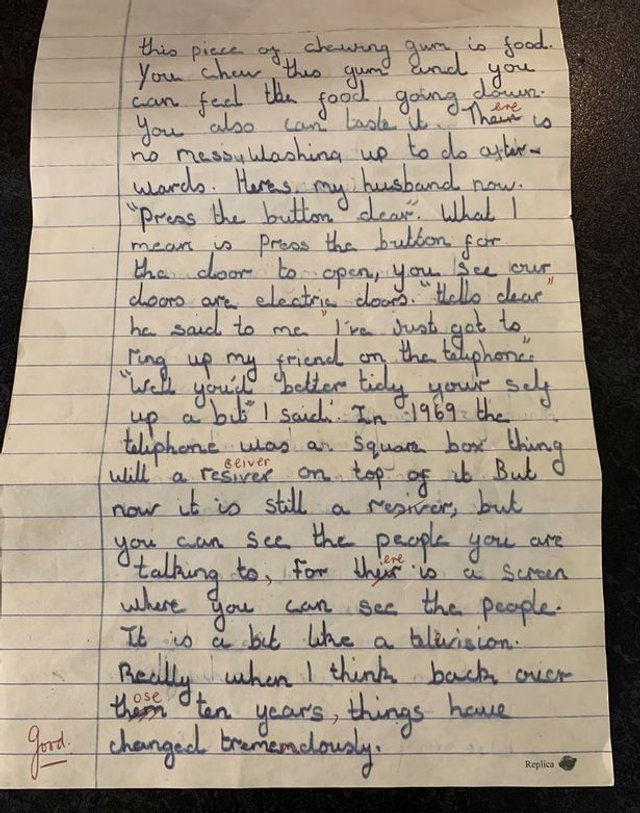 this piece of chewing gum is food.
You chew this gum and you
can feel the food going down.
You also can taste it. Their ere is
no messy washing up to do after-
wards. Heres my husband now.
"Press the button dear". What I
mean is Press the button for
the door to open, you see our
doors are electric doors. "Hello dear"
he said to me "I've just got to
ring up my friend on the teliphone".
"Well you'd better tidy your self
up a bit" I said. In 1969 the
teliphone was a square box thing
will a resiver ceiver on top of it But
now it is still a resiver, but
you can see the people you are
talking to, for their ere is a screen
where you can see the people.
It is a bit like a television.
Really when I think back over
them ose ten years, things have
changed trememdously.
Good.
Replica